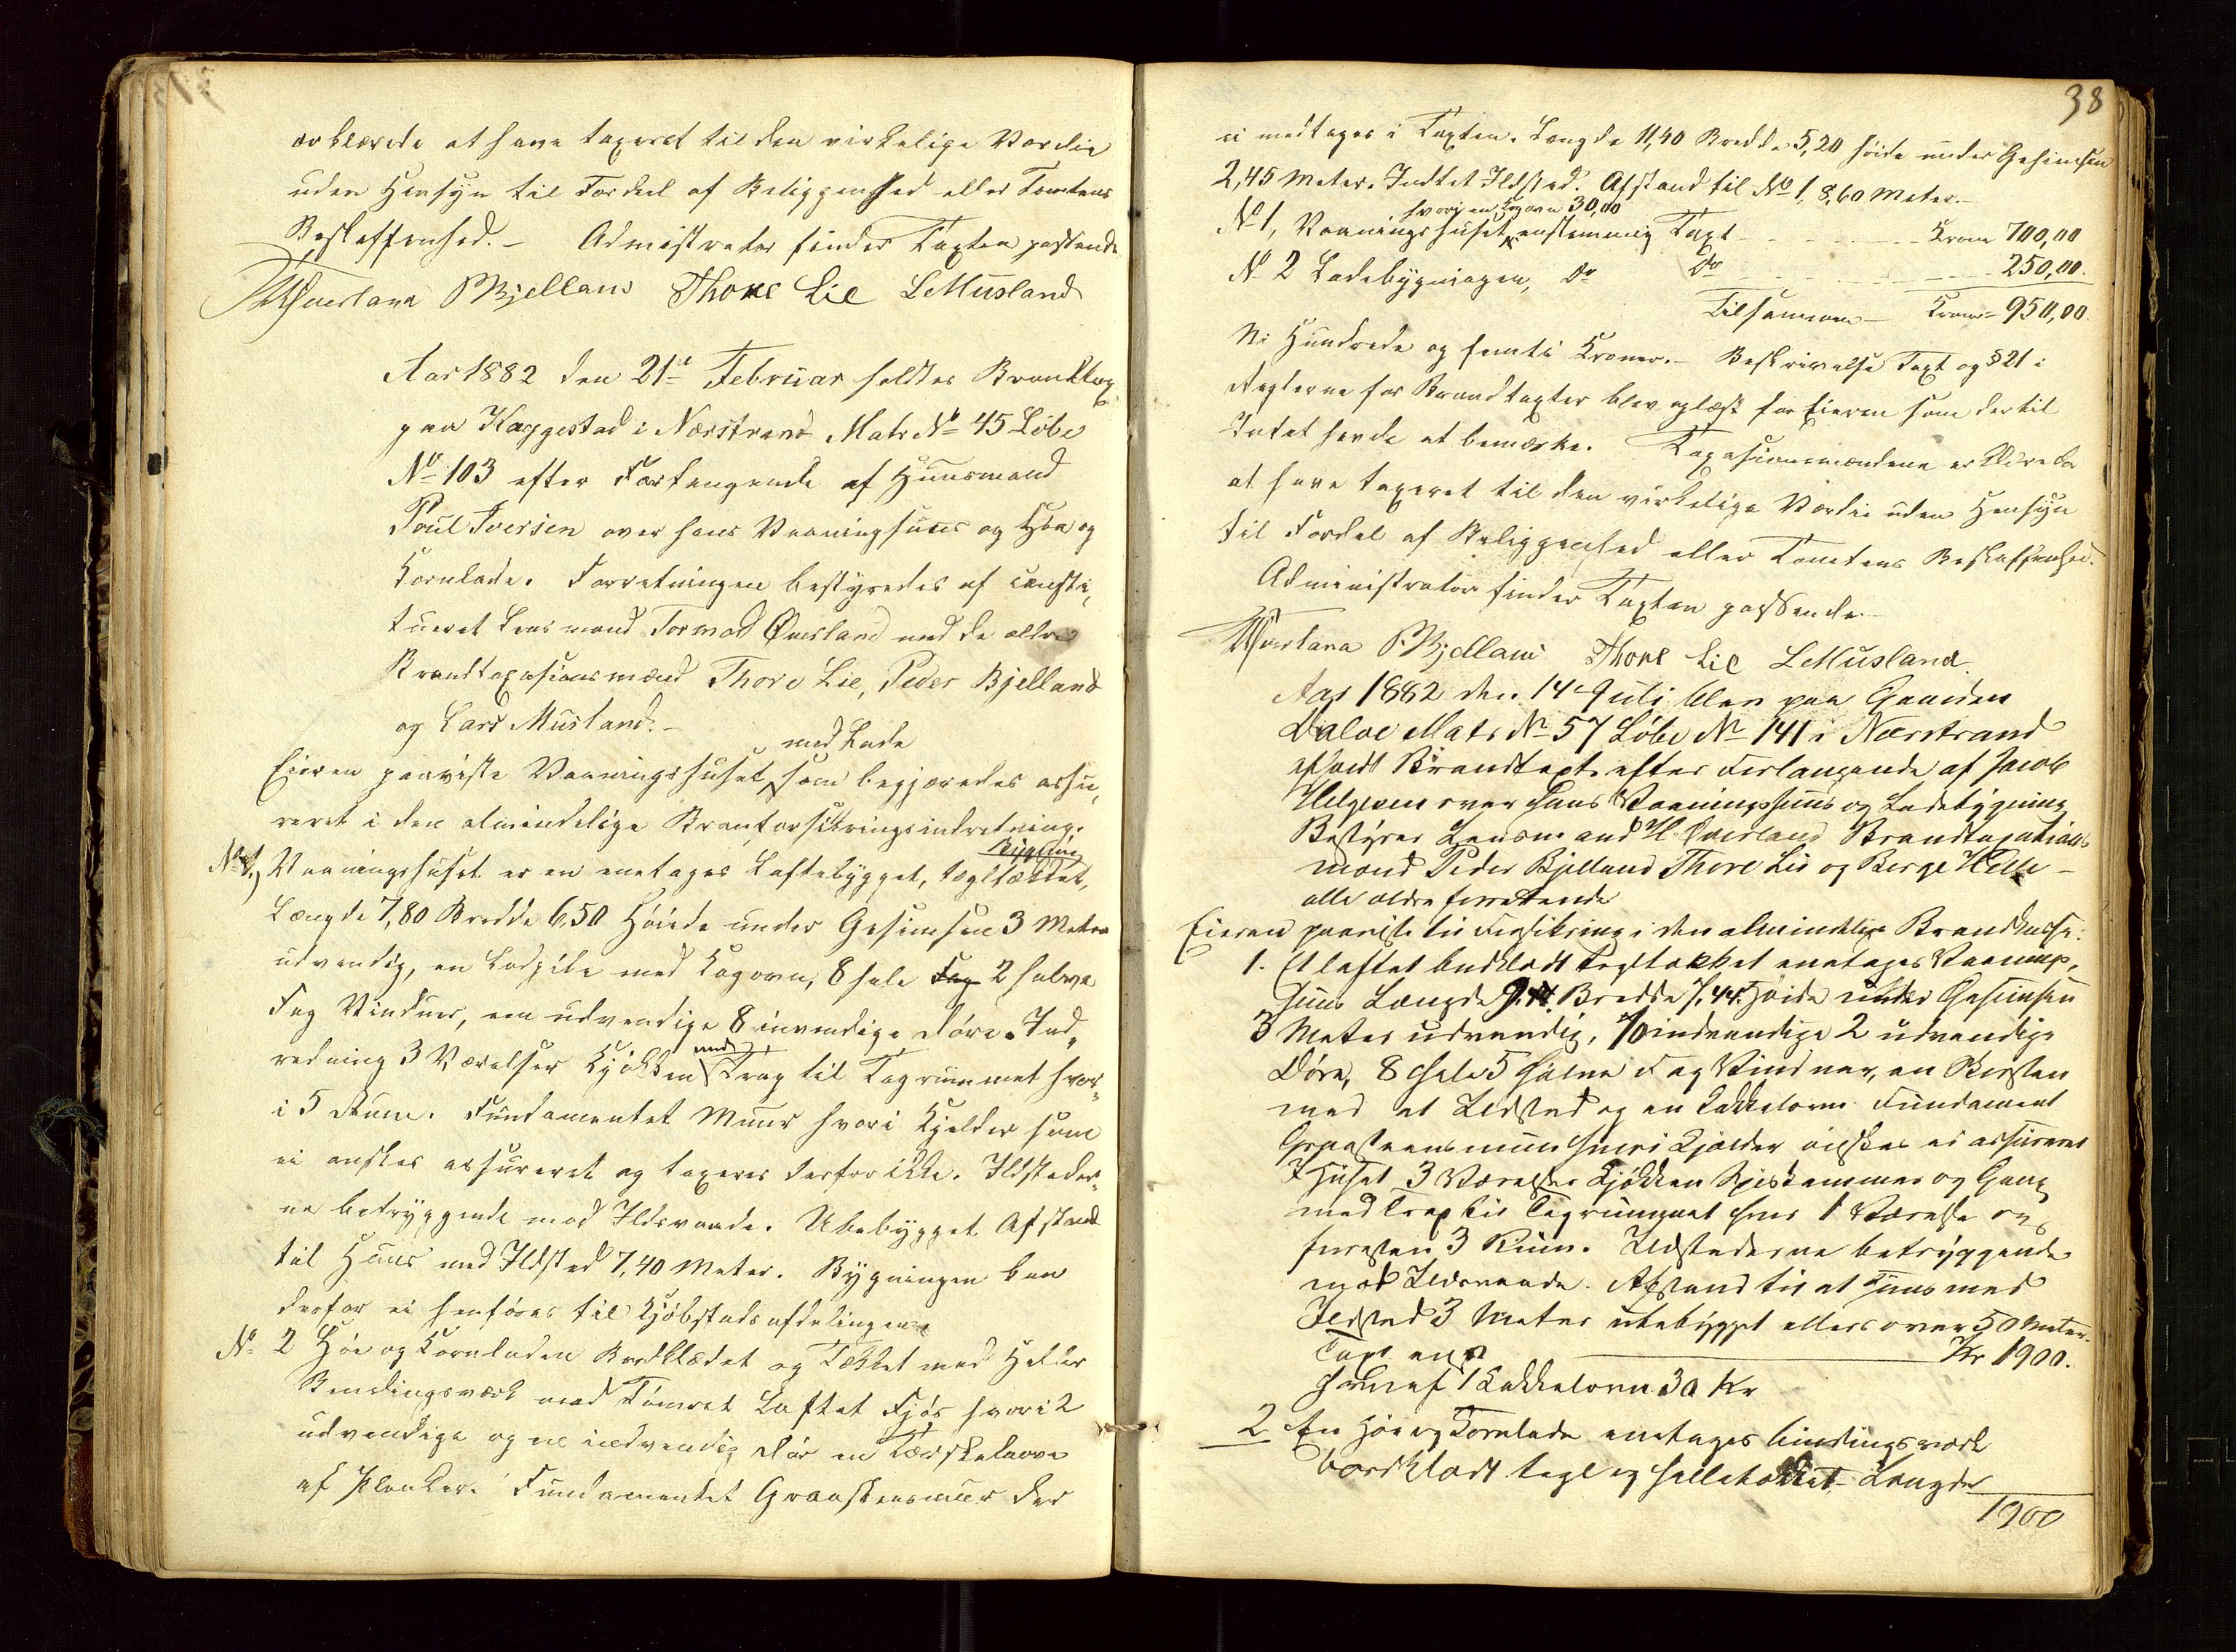 erklærede at have taxeret til den virkelige Værdie
uden Hensyn til Fordeel af Beliggenhed eller Tomtens
Beskaffenhed. – Admistrator finder Taxten passende
PBjelland Thore Lie LMusland
Aar 1882 den 21de Februar holdtes Brandtaxt
paa Haggestad i Nærstrand Matr No 45 Løbe
No 103 efter Forlangende af Huusmand
Poul Iversen over hans Vaaningshuus og Høe og
Kornlade. Forretningen bestyredes af consti,
tueret Lensmand Tormod Øverland med de ældre
Brandtaxasionsmænd Thore Lie, Peder Bjelland
og Lars Musland. –
med Lade
Eieren paaviste Vaaningshuset, som begjæredes assu,
reret i den almindelige Brantforsikringsindretning.
No 1,) Vaaningshuset er en enetages Loftebygget, tægltækket,
Længde 7,80 Bredde 6,50 Høide under Gesimsen 3 Meter
udvendig, en Lodpibe med Kogovn, 8 hele Fag 2 halve
Fag Vinduer, een udvendige 8 invendige Døre. Ind„
med
redning 3 Værelser Kjøkken Trap til Tagrummet hvor„
i 5 Rum. Fundamentet Muur hvori Kjelder som
ei ønskes assureret og taxeres derfor ikke. Ildsteder„
ne betryggende mod Ildsvaade. Ubebygget Afstand
til Huus med Ildsted 7,40 Meter. Bygningen kan
derfor ei henføres til Kjøbstadsafdelingen
No 2 Høe og Kornladen Bordklædet og Tækket med Heller
Bindingsverk med Tømret Loftet Fjøs hvori 2
udvendige og en indvendig Dør en Tærskelaave
af Planker. Fundamentet Graasteensmuur der
38
ei medtages i Taxten. Længde 11,40 Bredde 5,20 høide under Gesimsen
2,45 Meter. Indtet Ildsted. Afstand til No 1, 8,60 Meter. –
hvori en Kogovn 30,00
No 1, Vaaningshuset, enstemmig Taxt - - - - Kroner 700,00
No 2 Ladebygningen, Do Do - - - - 250,00.
Tilsammen – Kroner 950,00.
Ni Hundrede og femti Kroner. – Beskrivelse Taxt og § 21 i
Reglerne for Brandtaxter blev oplæst for Eieren som dertil
Intet havde at bemærke. Taxasionsmændene erklærede
at have taxeret til den virkelige Værdie uden Hensyn
til Fordel af Beliggenhed eller Tomtens Beskaffenhed.
Administrator finder Taxten passende –
P.Bjelland Thore Lie LMusland.
Aar 1882 den 14de Juli blev paa Gaarden
Dalve Matr No 57 Løbe No 141 i Nærstrand
afholdt Brandtaxt efter Forlangende af Jacob
Helgesen over hans Vaaningshuus og Ladebygning
Bestyrer Lensmand H. Øverland Brandtaxations
mænd Peder Bjelland Thore Lie og Berge Helle –
alle ældre forrettende
Eieren paaviste til Forsikring i den almindelige Brandkasse:
1. Et loftet bordklædt tegltækket enetages Vaanings,
huus Længde 9.44 Bredde 7.44. Høide under Gesimsen
3 Meter udvendig, 10 indvendige 2 udvendige
Døre, 8 hele 5 halve Fag Vinduer, en Skorsten
med et Ildsted og en Kakkelovn. Fundament
Graasteensmuur hvori Kjælder ønskes ei assureret
I Huset 3 Værelser Kjøkken Spiskammer og Gang
med Trap til Tagrummet hvor 1 Værelse og
foresten 3 Rum. Ildstederne betryggende
mod Ildsvaade. Afstand til et Huus med
Ildsted 3 Meter ubebygget ellers over 50 Meter.
Taxt Kr 1900.
heraf 1 Kakkelovn 30 Kr
2 En Høe og Kornlade enetages bindingsværk
bordklædt tegl og helletækket – Længde
1900